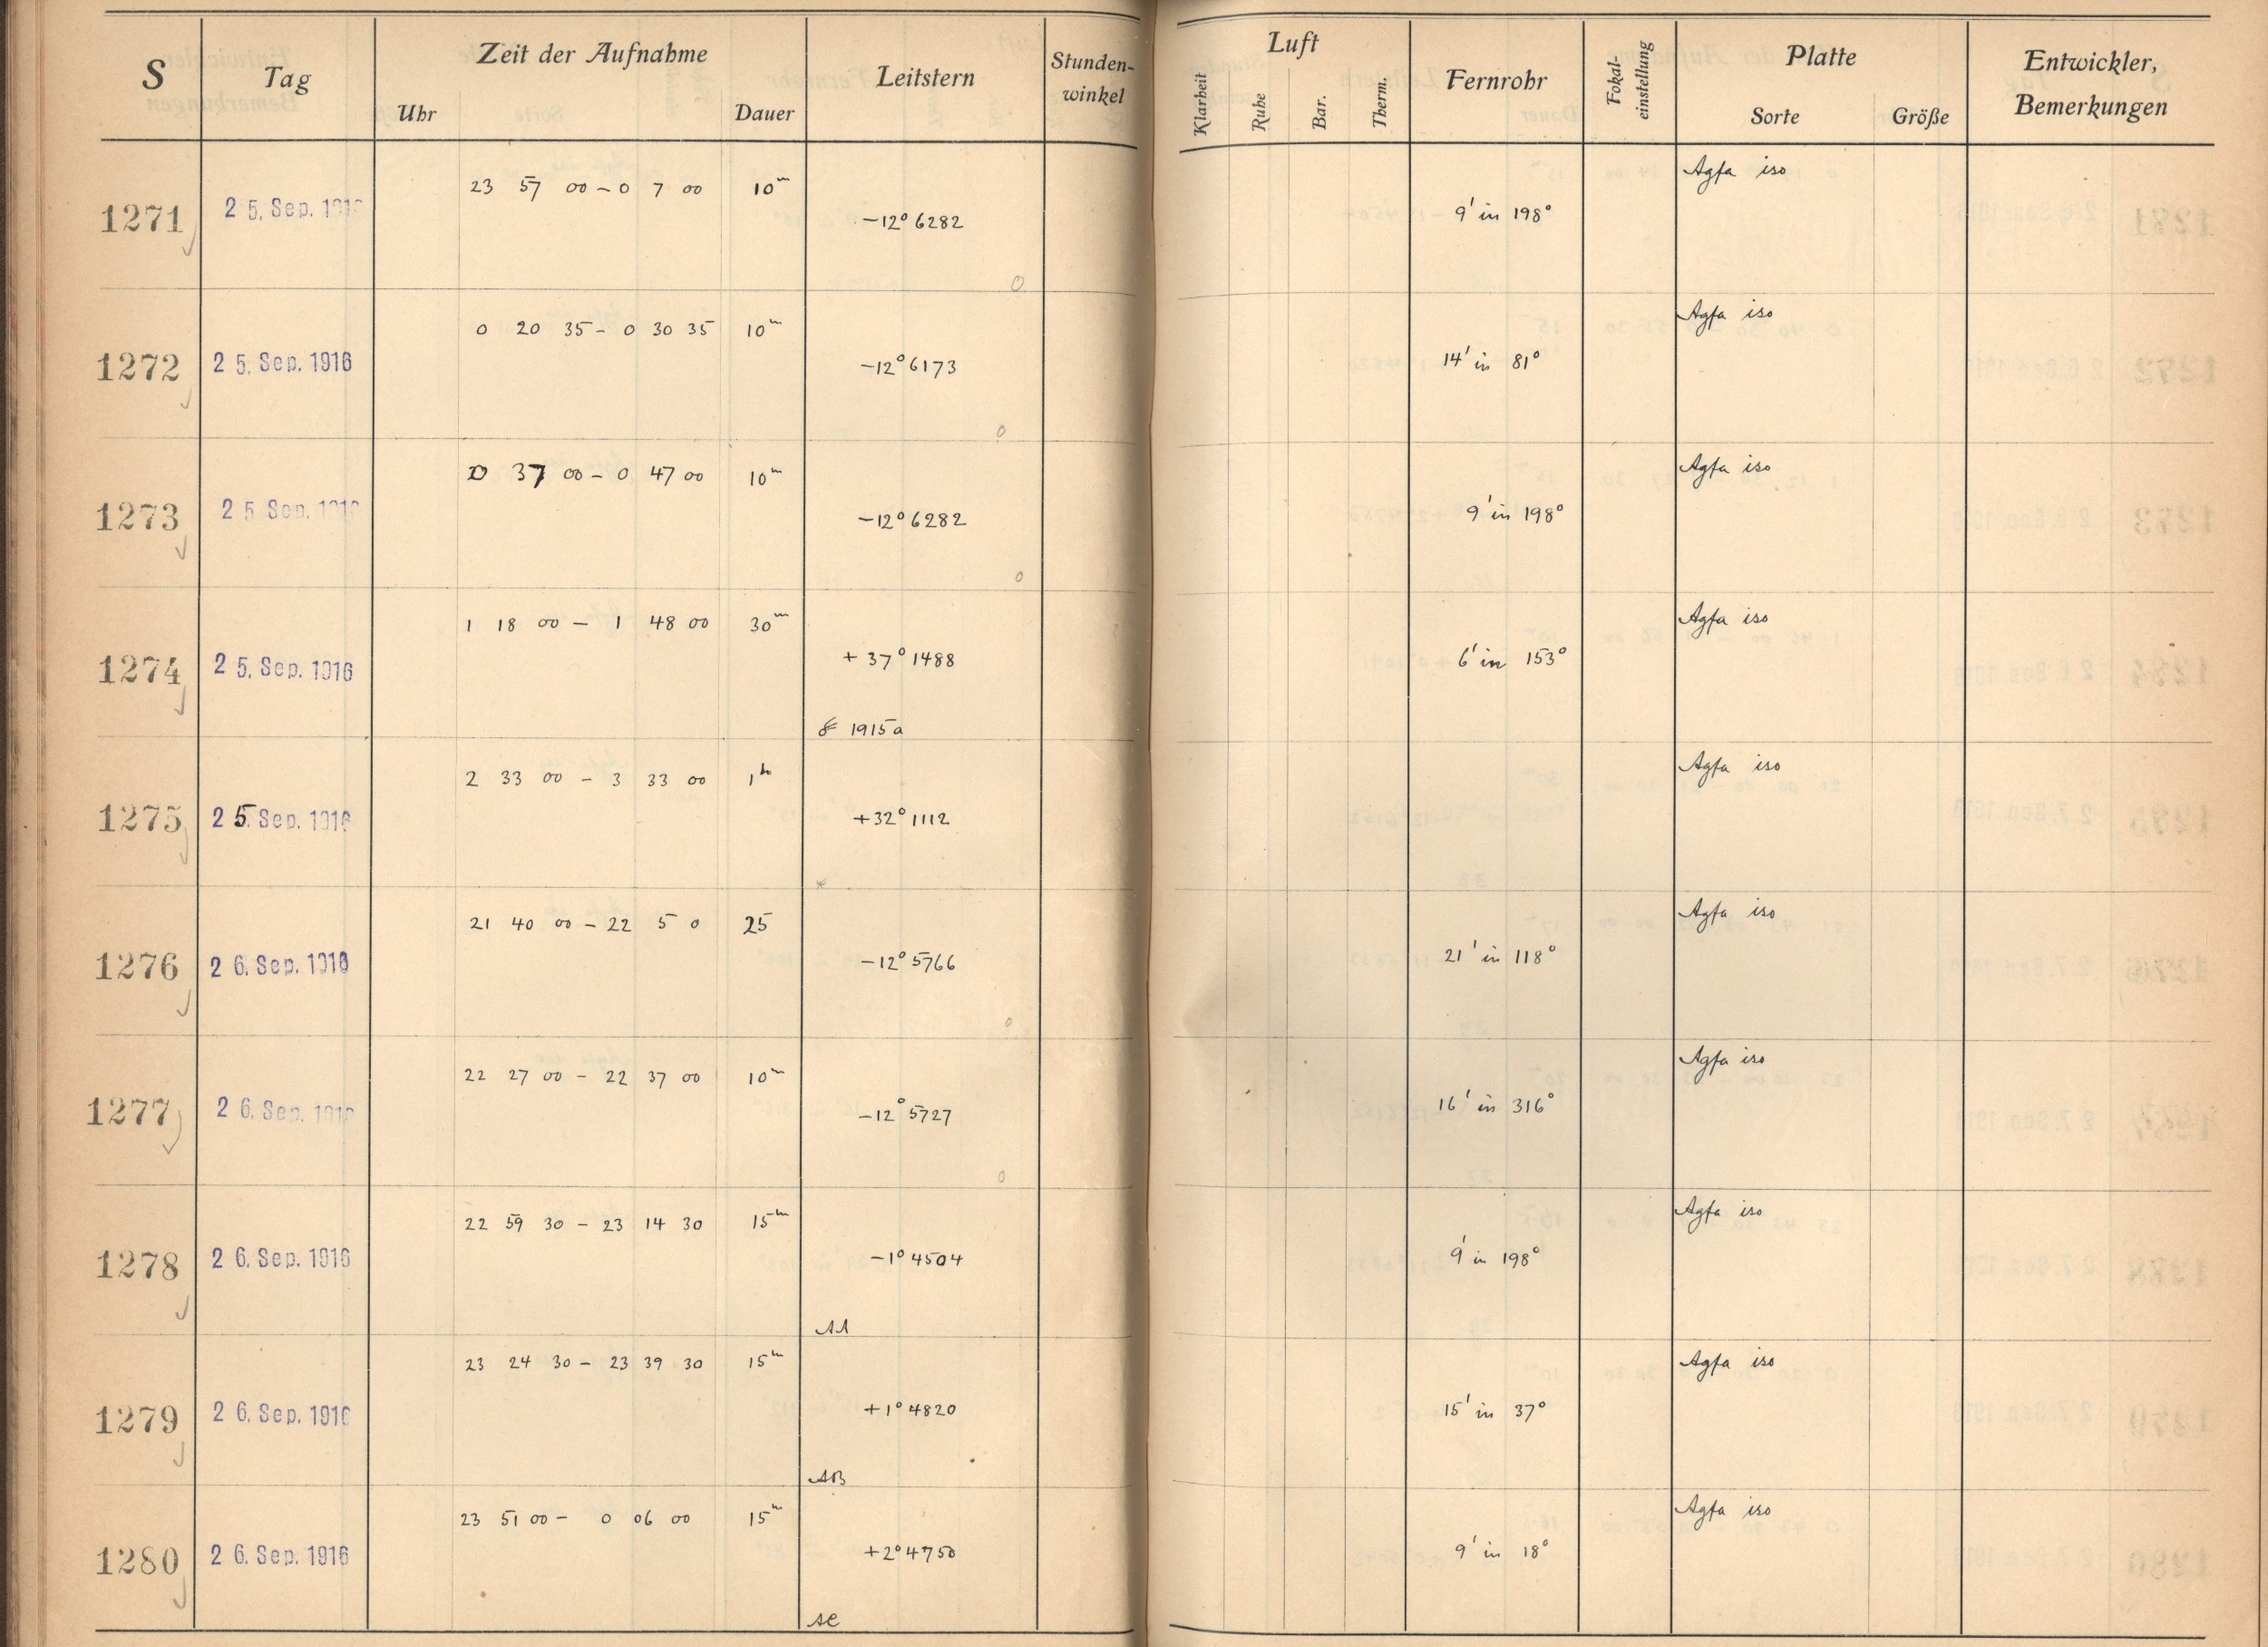 S Tag Zeit der Aufnahme Leitstern Stunden- winkel Luft Fernrohr Fokal- einstellung Platte Entwickler, Bemerkungen
Uhr Dauer Klarheit Ruhe Bar. Therm. Sorte Größe
23 57 00 – 0 7 00 10m Agfa iso
1271 25. Sep. 1916 –12° 6282 9' in 198°
0
0 20 35 – 0 30 35 10m Agfa iso
1272 25. Sep. 1916 –12° 6173 14' in 81°
0
0 37 00 – 0 47 00 10m Agfa iso
1273 25. Sep. 1916 –12° 6282 9' in 198°
0
1 18 00 – 1 48 00 30m Agfa iso
1274 25. Sep. 1916 + 37° 1488 6' in 153°
1915a
2 33 00 – 3 33 00 1h Agfa iso
1275 25. Sep. 1916 +32° 1112
*
21 40 00 – 22 5 0 25 Agfa iso
1276 26. Sep. 1916 –12° 5766 21' in 118°
0
22 27 00 – 22 37 00 10m Agfa iso
1277 26. Sep. 1916 –12° 5727 16' in 316°
0
22 59 30 – 23 14 30 15m Agfa iso
1278 26. Sep. 1916 –1° 4504 9' in 198°
AA
23 24 30 – 23 39 30 15m Agfa iso
1279 26. Sep. 1916 +1° 4820 15' in 37°
AB
23 51 00 – 0 06 00 15m Agfa iso
1280 26. Sep. 1916 +2° 4750 9' in 18°
AC